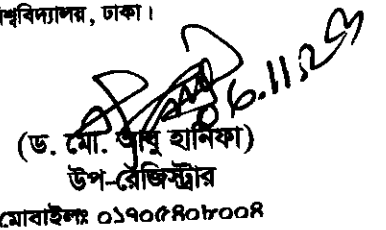 শ্ববিদ্যালয়, ঢাকা।
06.11.25
(ড. মো. আবু হানিফা)
উপ-রেজিস্ট্রার
মোবাইলঃ ০১৭০৫৪০৮০০৪